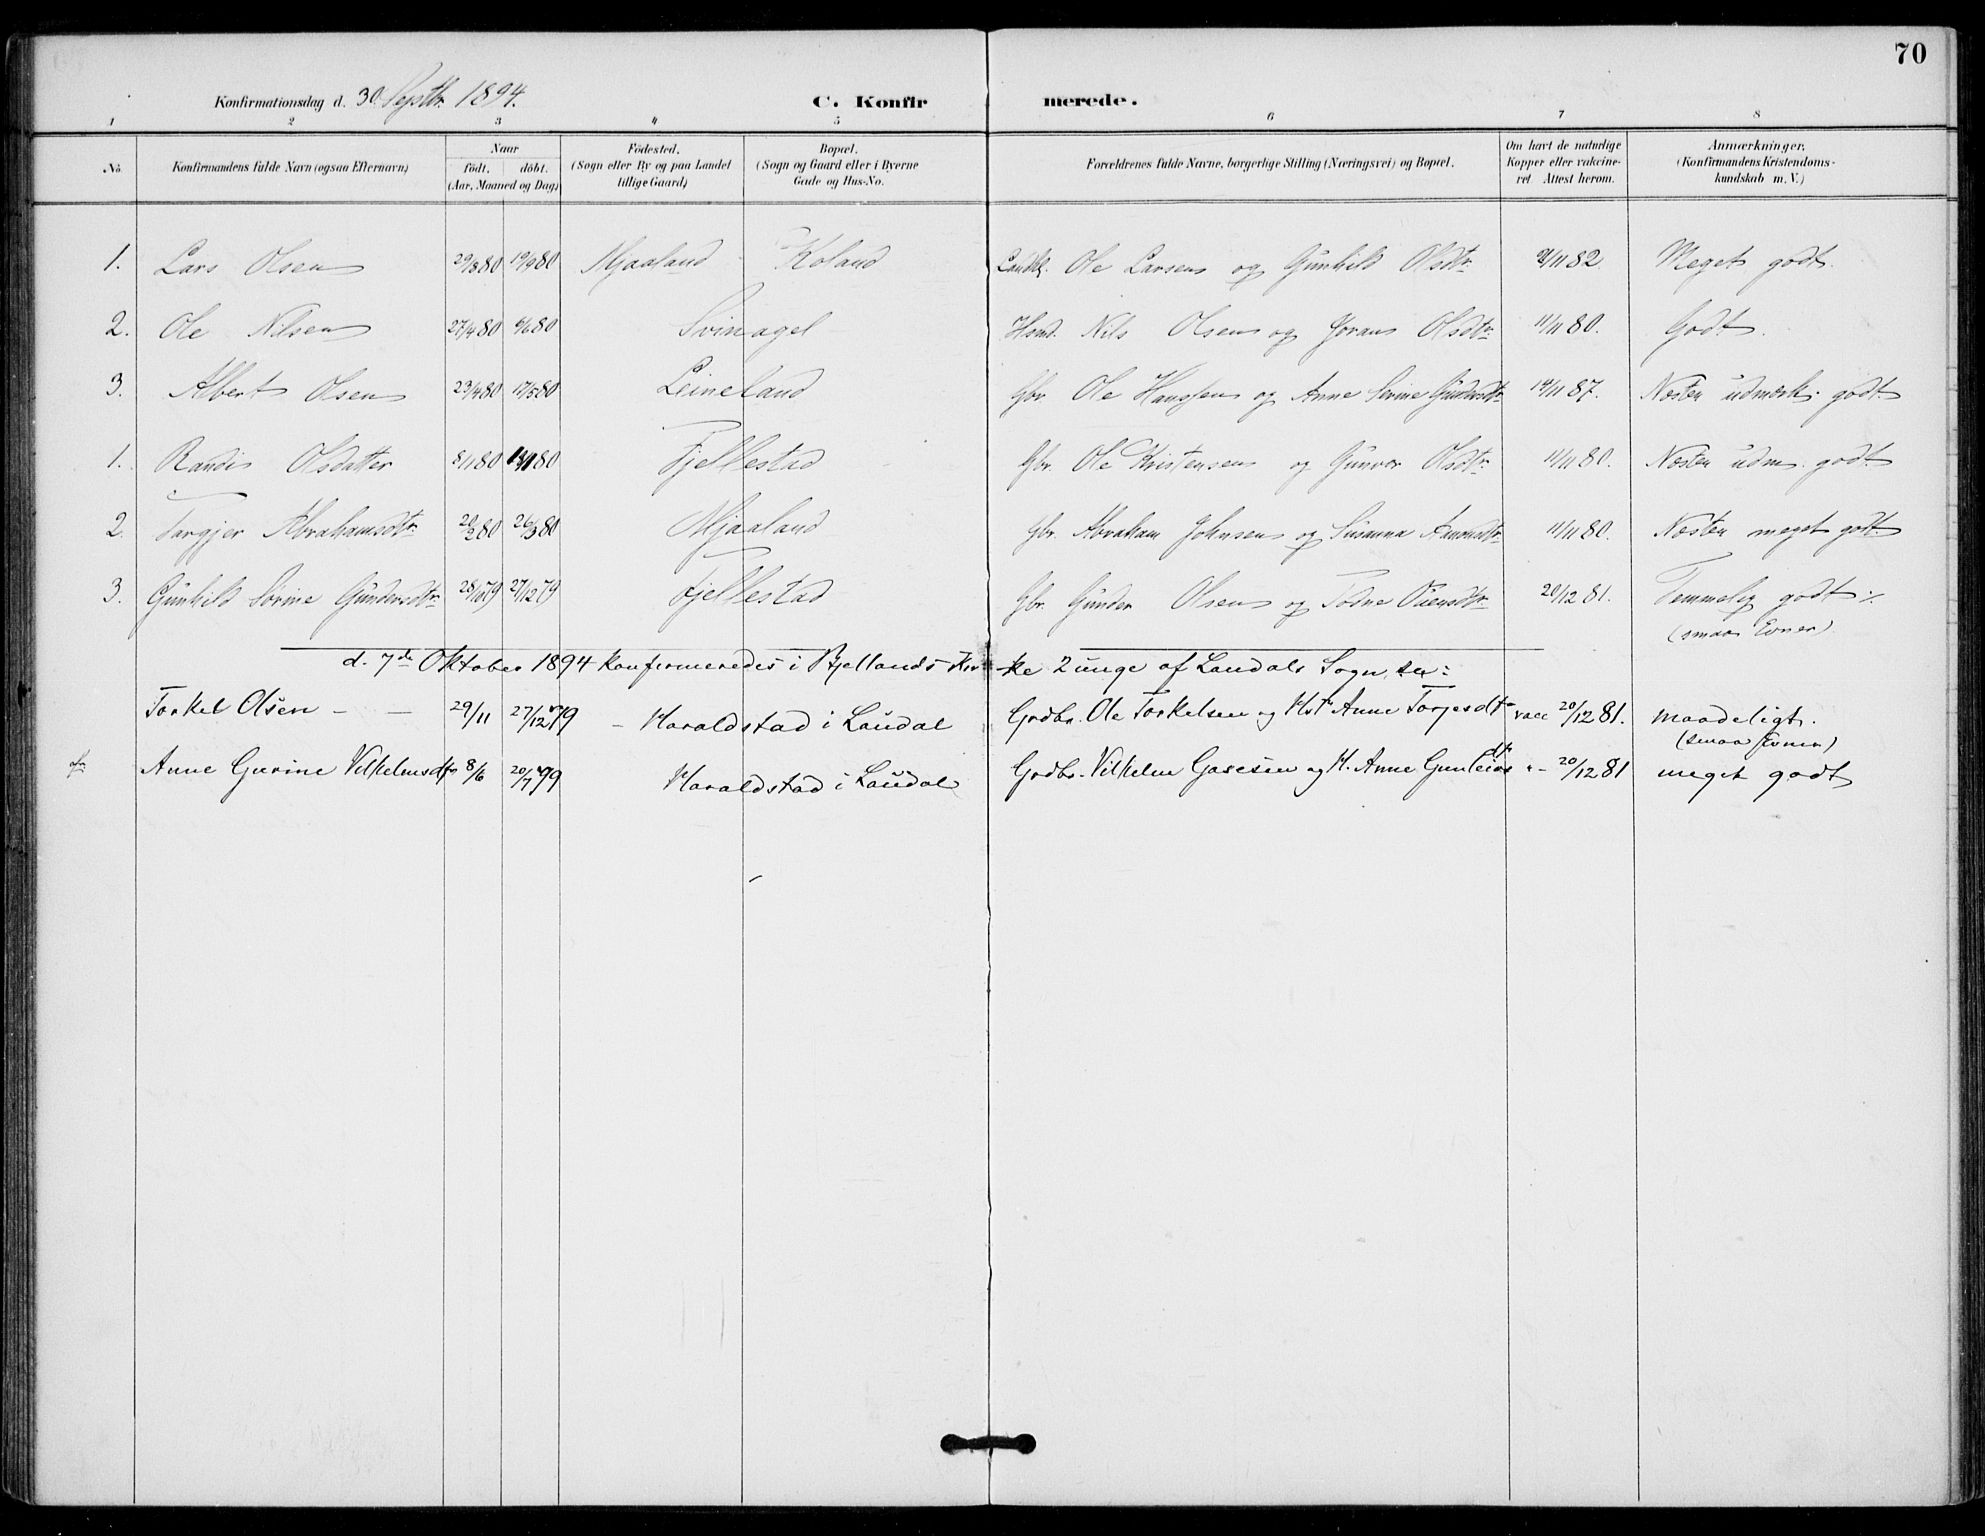 70
Konfirmationsdag d. 30 Septbr. 1894.
C. Konfirmerede.
1 2 3 4 5 6 7 8
No. Konfirmandens fulde Navn (ogsaa Efternavn) Naar födt. döbt. (Aar, Maaned og Dag) Födested. (Sogn eller By og paa Landet tillige Gaard) Bopæl. (Sogn og Gaard eller i Byerne Gade og Hus-No. Forældrenes fulde Navne, borgerlige Stilling (Næringsvei) og Bopæl. Om havt de naturlige Kopper eller vakcineret. Attest herom. Anmærkninger, (Konfirmandens Kristendomskundskab m. V.)
1. Lars Olsen 29/8 80 19/9 80 Mjaaland Koland Ole Larsen og Gunhild Olsdtr 82 Meget godt.
2. Ole Nilsen 27/4 80 6/6 80 Svinagel Hsmd. Nils Olsen og Joran Olsdtr 11/11 80. Godt.
3. Albert Olsen 23/4 80 17/5 80 Leineland Gbr. Ole Hanssen og Anne Serine Gundersdtr 14/11 87. Næsten udmærk. godt
1. Randi Olsdatter 5/11 80 80 Fjellestad Gbr. Ole Kristensen og Gunvor Olsdtr 11/11 80. Næsten udm. godt
2. Targjer Abrahamsdtr. 20/2 80 26/3 80 Mjaaland Gbr. Abraham Johnsen og Susanna 11/11 80. Næsten meget godt
3. Gunhild Sorine Gundersdtr. 28/10 79 27/12 79 Fjellestad Gbr. Gunder Olsen og Todne 20/12 81. Temmelig godt
(smaa Evner)
d. 7de Oktober 1894 konfirmeredes i Bjellands Kirke 2 unge af Laudals Sogn
Torkel Olsen - - 29/11 27/12 79 - Haraldstad i Laudal Grdbr. Ole Torkelsen og Hst Anne Torjesdtr vacc 20/12 81. maadeligt.
(smaa Evner)
Anne Gurine Vilhelmsdtr 8/6 20/7 79 Haraldstad i Laudal Grdbr. Vilhelm og H. Anne 20/12 81 meget godt